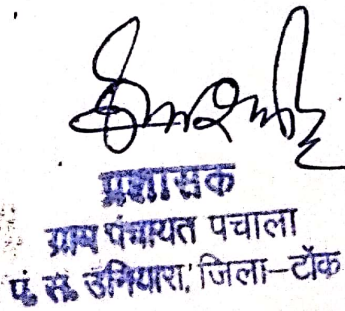 प्रशासक
ग्राम पंचायत पचाला
पं. स. उनियारा, जिला-टोंक